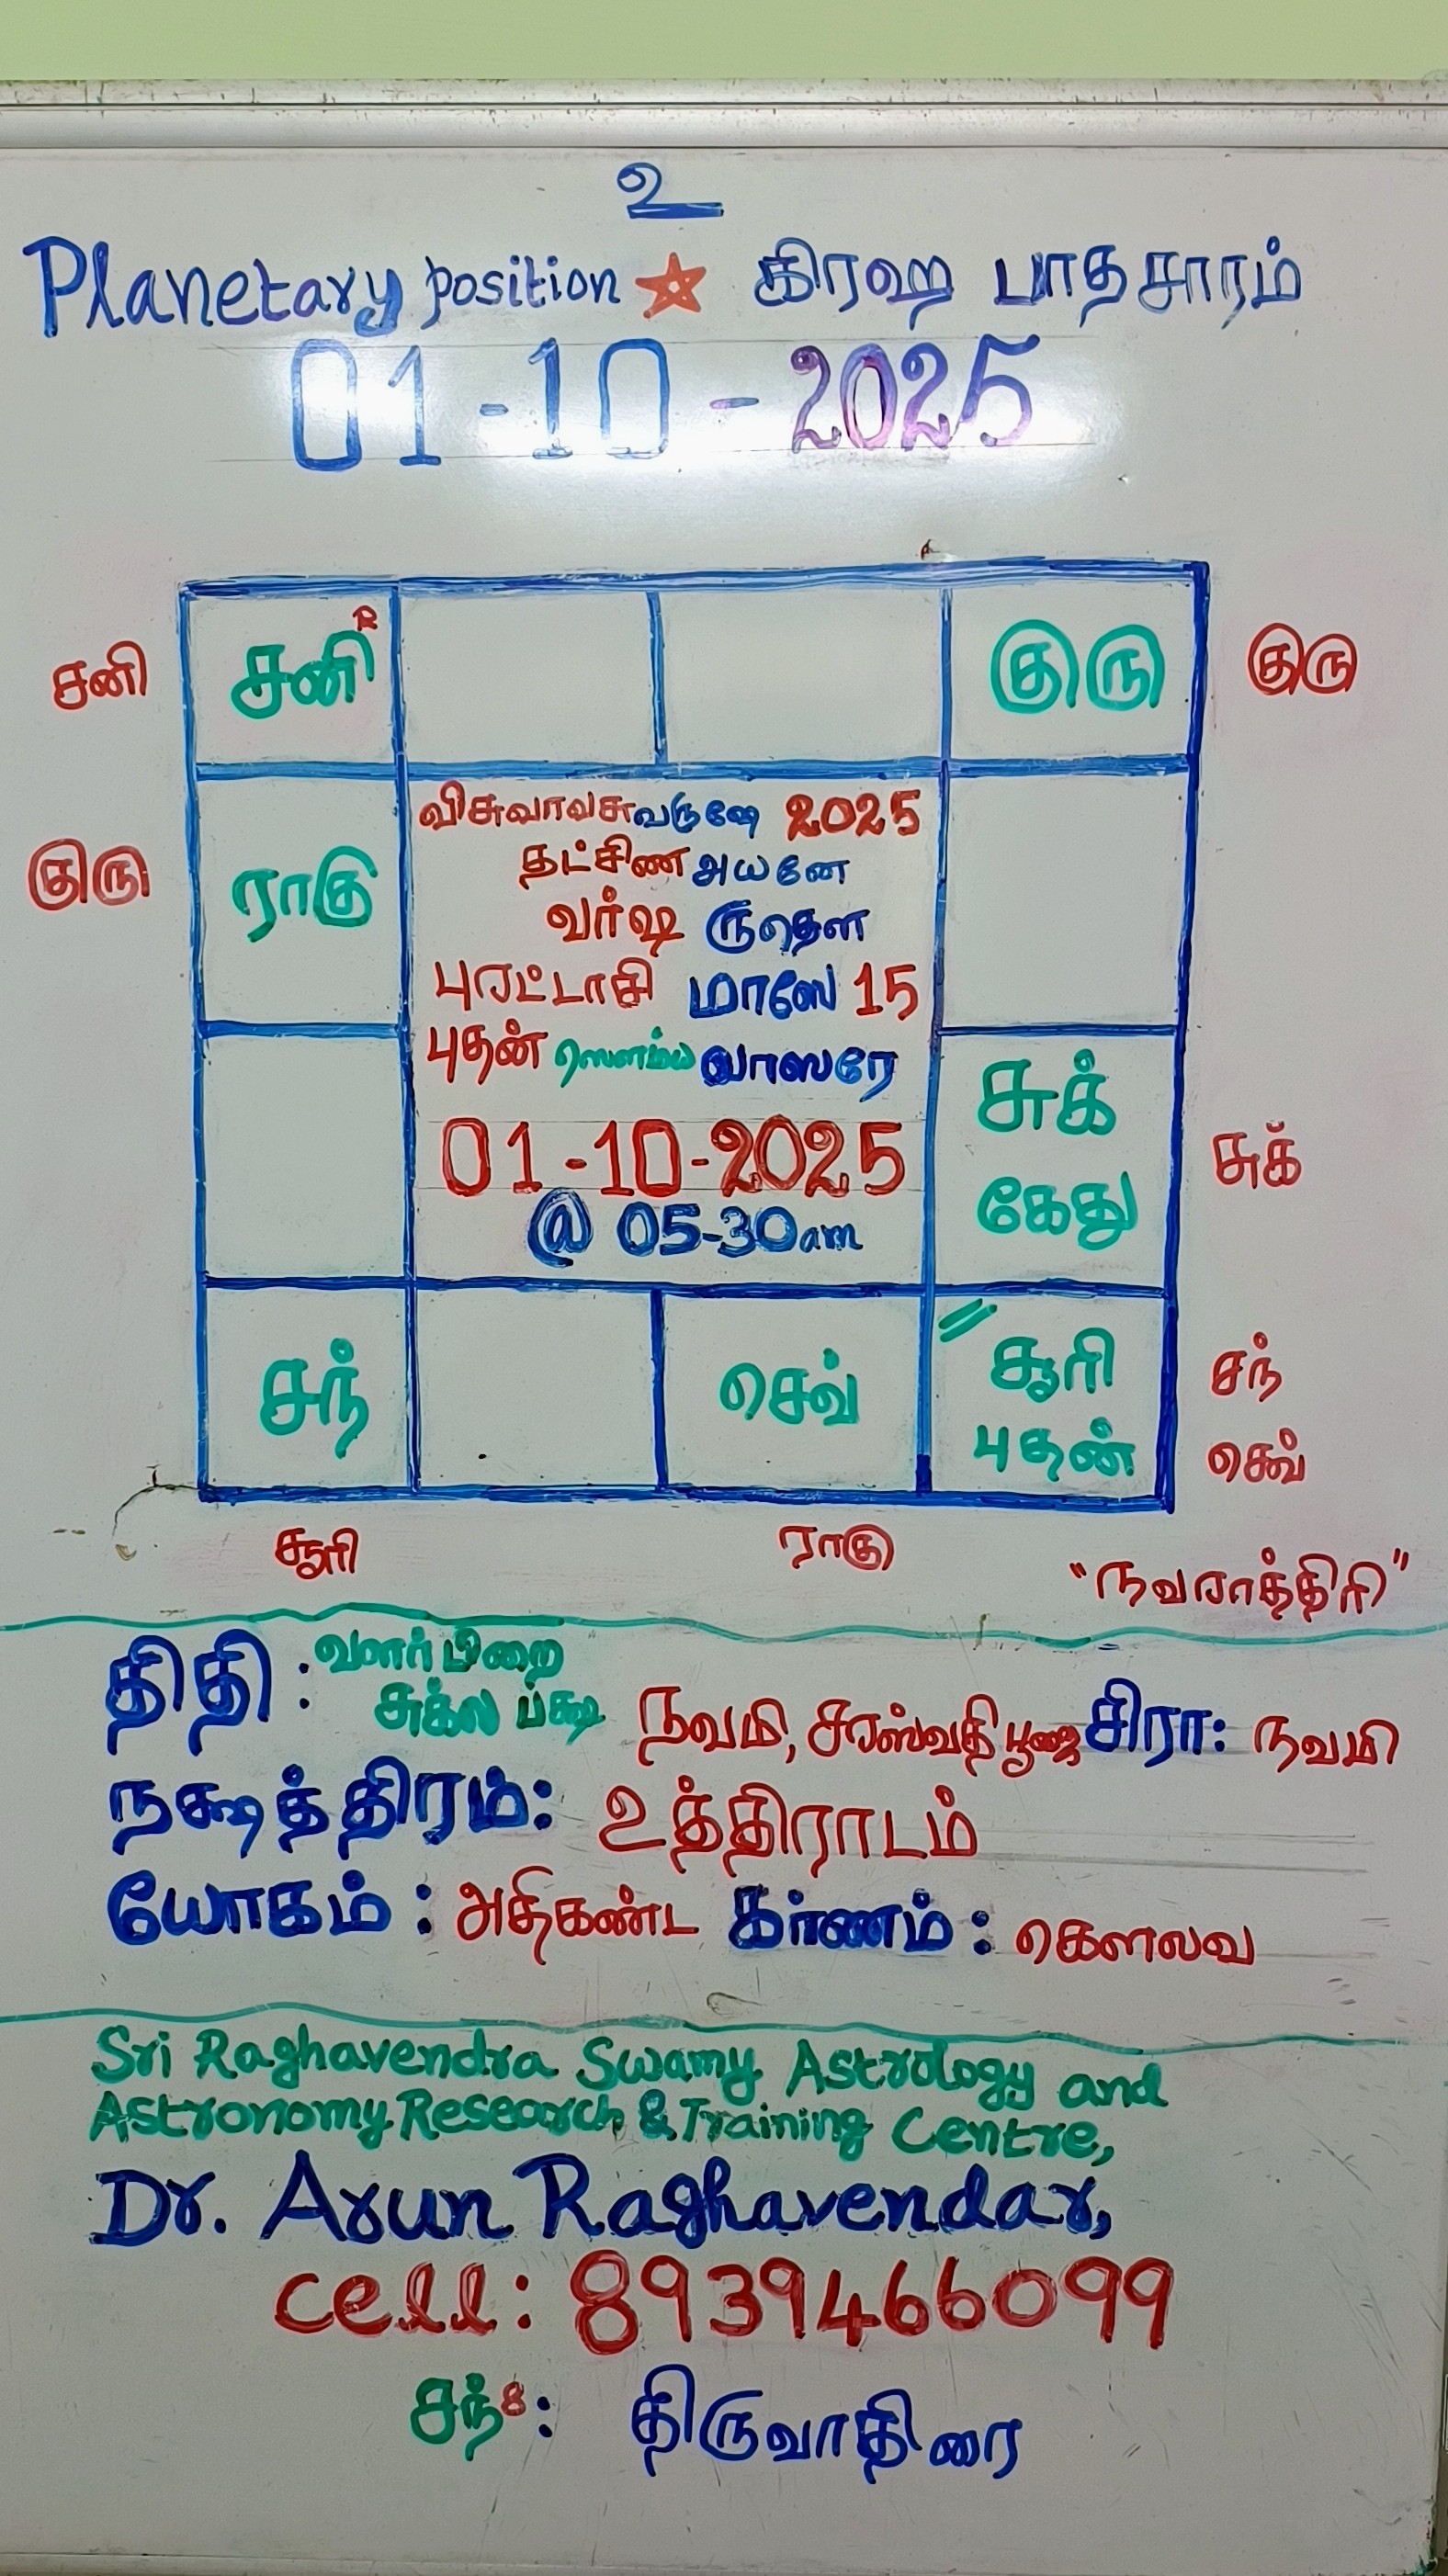 உ
Planetary position கிரஹ பாதசாரம்
01-10-2025
சனி சனி R குரு குரு
விசுவாவசுவருஷே 2025
தட்சிண அயனே
குரு ராகு வர்ஷ ருதௌ
புரட்டாசி மாஸே 15
புதன் ஸௌம்ய வாஸரே
சுக்
கேது சுக்
01-10-2025
@ 05-30am
சந் செவ் சூரி சந்
புதன் செவ்
சூரி ராகு "நவராத்திரி"
திதி : வளர்பிறை
சுக்ல பக்ஷ நவமி, சரஸ்வதி பூஜை சிரா: நவமி
நக்ஷத்திரம்: உத்திராடம்
யோகம் : அதிகண்ட கரணம் : கௌலவ
Sri Raghavendra Swamy Astrology and
Astronomy Research & Training Centre,
Dr. Arun Raghavendar,
cell: 8939466099
சந்8: திருவாதிரை